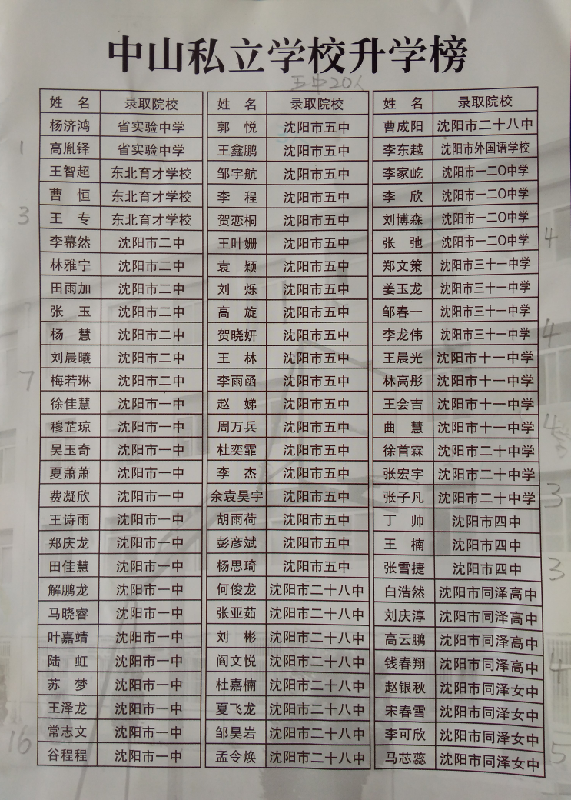 中山私立学校升学榜
五中20人
姓 名 录取院校
杨济鸿 省实验中学
高胤铎 省实验中学
王智超 东北育才学校
曹 恒 东北育才学校
王 专 东北育才学校
李幕然 沈阳市二中
林雅宁 沈阳市二中
田雨加 沈阳市二中
张 玉 沈阳市二中
杨 慧 沈阳市二中
刘晨曦 沈阳市二中
梅若琳 沈阳市二中
徐佳慧 沈阳市一中
穆芷琼 沈阳市一中
吴玉奇 沈阳市一中
夏萧萧 沈阳市一中
费凝欣 沈阳市一中
王诗雨 沈阳市一中
郑庆龙 沈阳市一中
田佳慧 沈阳市一中
解鹏龙 沈阳市一中
马晓睿 沈阳市一中
叶嘉靖 沈阳市一中
陆 虹 沈阳市一中
苏 梦 沈阳市一中
王泽龙 沈阳市一中
常志文 沈阳市一中
谷程程 沈阳市一中
1
3
7
16
姓 名 录取院校
郭 悦 沈阳市五中
王鑫鹏 沈阳市五中
邹宇航 沈阳市五中
李 程 沈阳市五中
贺恋桐 沈阳市五中
王叶姗 沈阳市五中
袁 颖 沈阳市五中
刘 烁 沈阳市五中
高 旋 沈阳市五中
贺晓妍 沈阳市五中
王 林 沈阳市五中
李雨菡 沈阳市五中
赵 娣 沈阳市五中
周万兵 沈阳市五中
杜奕霏 沈阳市五中
李 杰 沈阳市五中
余袁昊宇 沈阳市五中
胡雨荷 沈阳市五中
彭彦斌 沈阳市五中
杨思琦 沈阳市五中
何俊龙 沈阳市二十八中
张亚茹 沈阳市二十八中
刘 彬 沈阳市二十八中
阎文悦 沈阳市二十八中
杜嘉楠 沈阳市二十八中
夏飞龙 沈阳市二十八中
邹昊岩 沈阳市二十八中
孟令焕 沈阳市二十八中
姓 名 录取院校
曹成阳 沈阳市二十八中
李东越 沈阳市外国语学校
李家屹 沈阳市一二〇中学
李 欣 沈阳市一二〇中学
刘博淼 沈阳市一二〇中学
张 弛 沈阳市一二〇中学
郑文策 沈阳市三十一中学
姜玉龙 沈阳市三十一中学
邹春一 沈阳市三十一中学
李龙伟 沈阳市三十一中学
王晨光 沈阳市十一中学
林高彤 沈阳市十一中学
王会吉 沈阳市十一中学
曲 慧 沈阳市十一中学
徐首霖 沈阳市二十中学
张宏宇 沈阳市二十中学
张子凡 沈阳市二十中学
丁 帅 沈阳市四中
王 楠 沈阳市四中
张雪捷 沈阳市四中
白浩然 沈阳市同泽高中
刘庆淳 沈阳市同泽高中
高云鹏 沈阳市同泽高中
钱春翔 沈阳市同泽高中
赵银秋 沈阳市同泽女中
宋春雪 沈阳市同泽女中
李可欣 沈阳市同泽女中
马芯蕊 沈阳市同泽女中
4
4
4
3
3
4
5